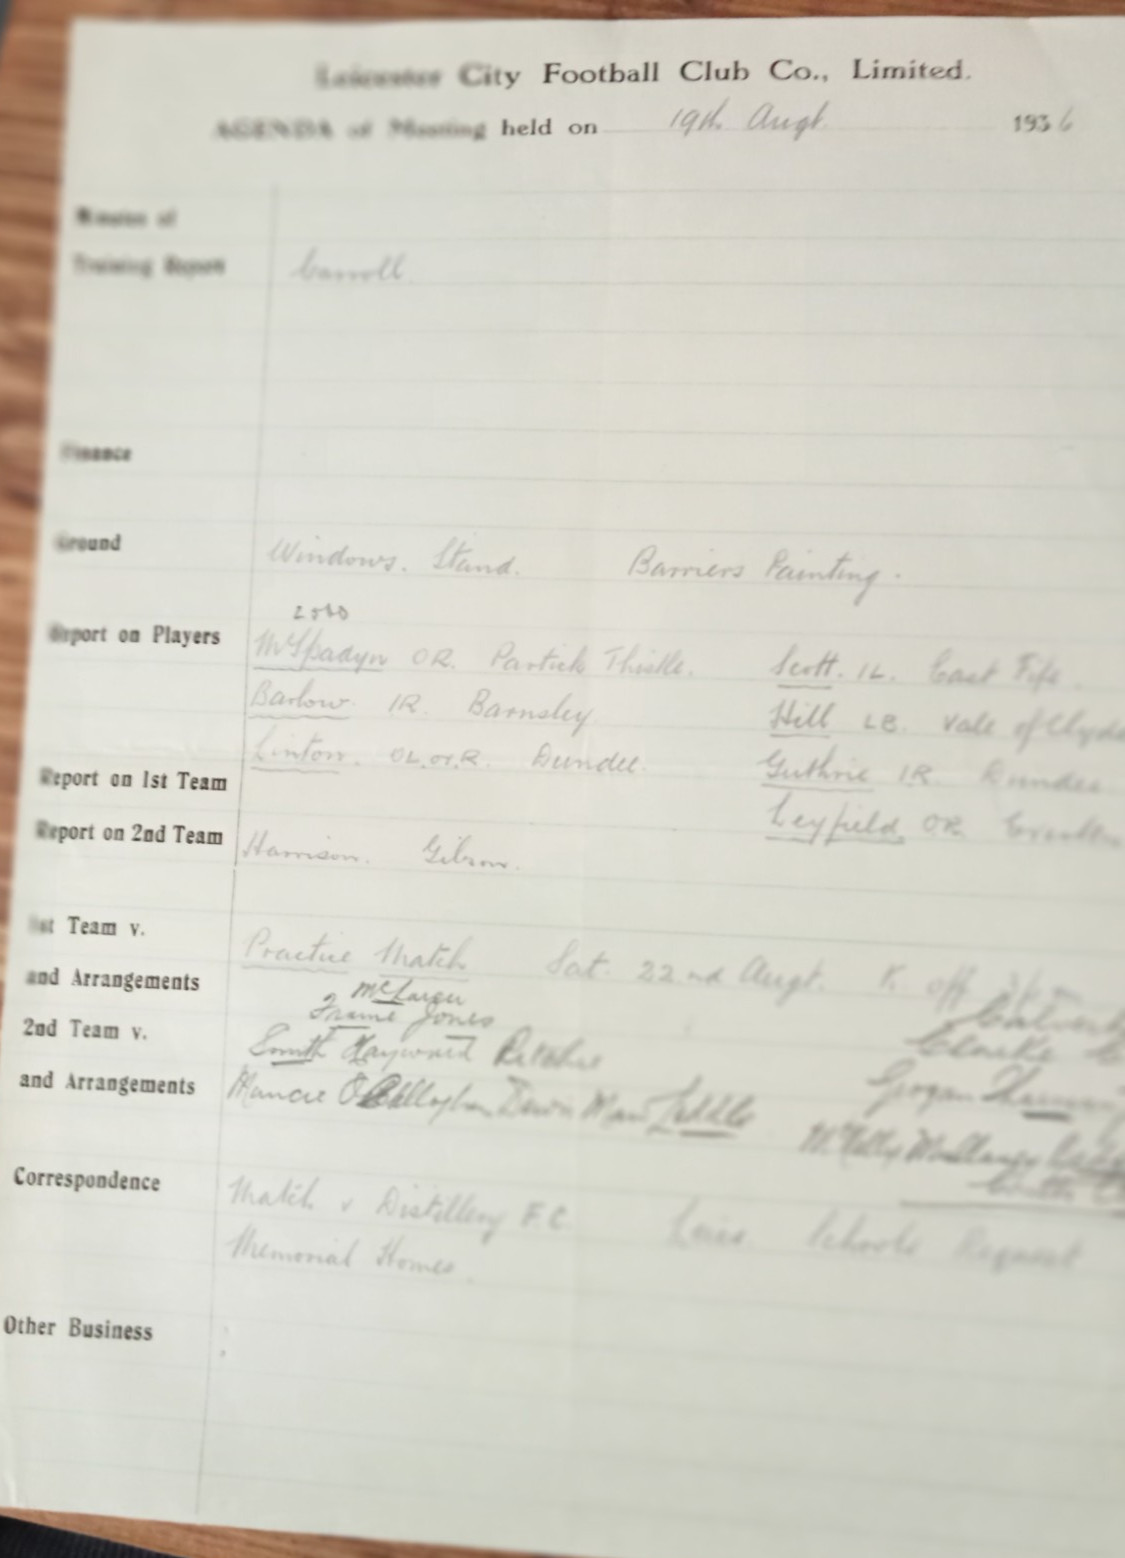 Leicester City Football Club Co., Limited.
AGENDA of Meeting held on 19th Augt. 1936
Minutes of
Training Report Carroll.
Finance
Ground Windows. Stand. Barriers Painting.
Report on Players McSpadyn OR. Partick Thistle. Scott. IL. East Fife.
Barlow. IR. Barnsley Hill LB. Vale of Clyde
Linton. OL. or. R. Dundee. Guthrie IR Dundee
Report on 1st Team Leyfield OR
Report on 2nd Team Harrison. Gibson.
1st Team v. Practice Match Sat. 22nd Augt. K. off
and Arrangements McLaren
Frame Jones Calvert
2nd Team v. Smith Hayward Ritchie Clarke
and Arrangements Mancie O'Callaghan Liddle Grogan
McNally
Smith
Correspondence Match v Distillery F.C. Leics Schools Request
Memorial Homes.
Other Business